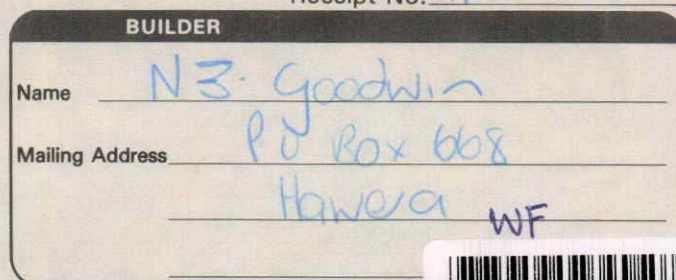 Receipt No.
BUILDER
Name N3. Goodwin
Mailing Address P O Box 668
Hawera
WF